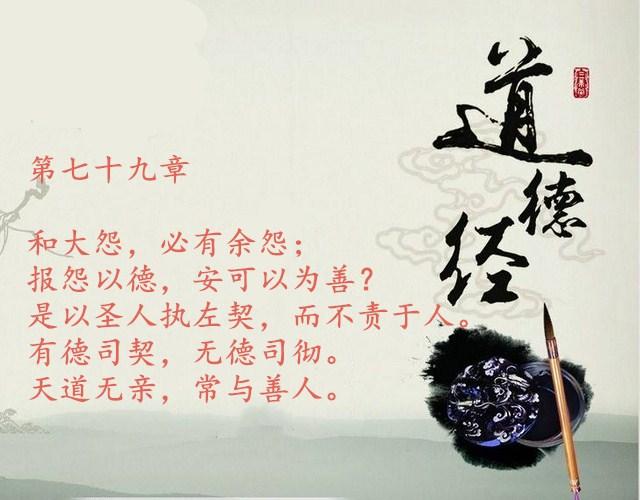 道德经
第七十九章
和大怨，必有余怨；
报怨以德，安可以为善？
是以圣人执左契，而不责于人。
有德司契，无德司彻。
天道无亲，常与善人。